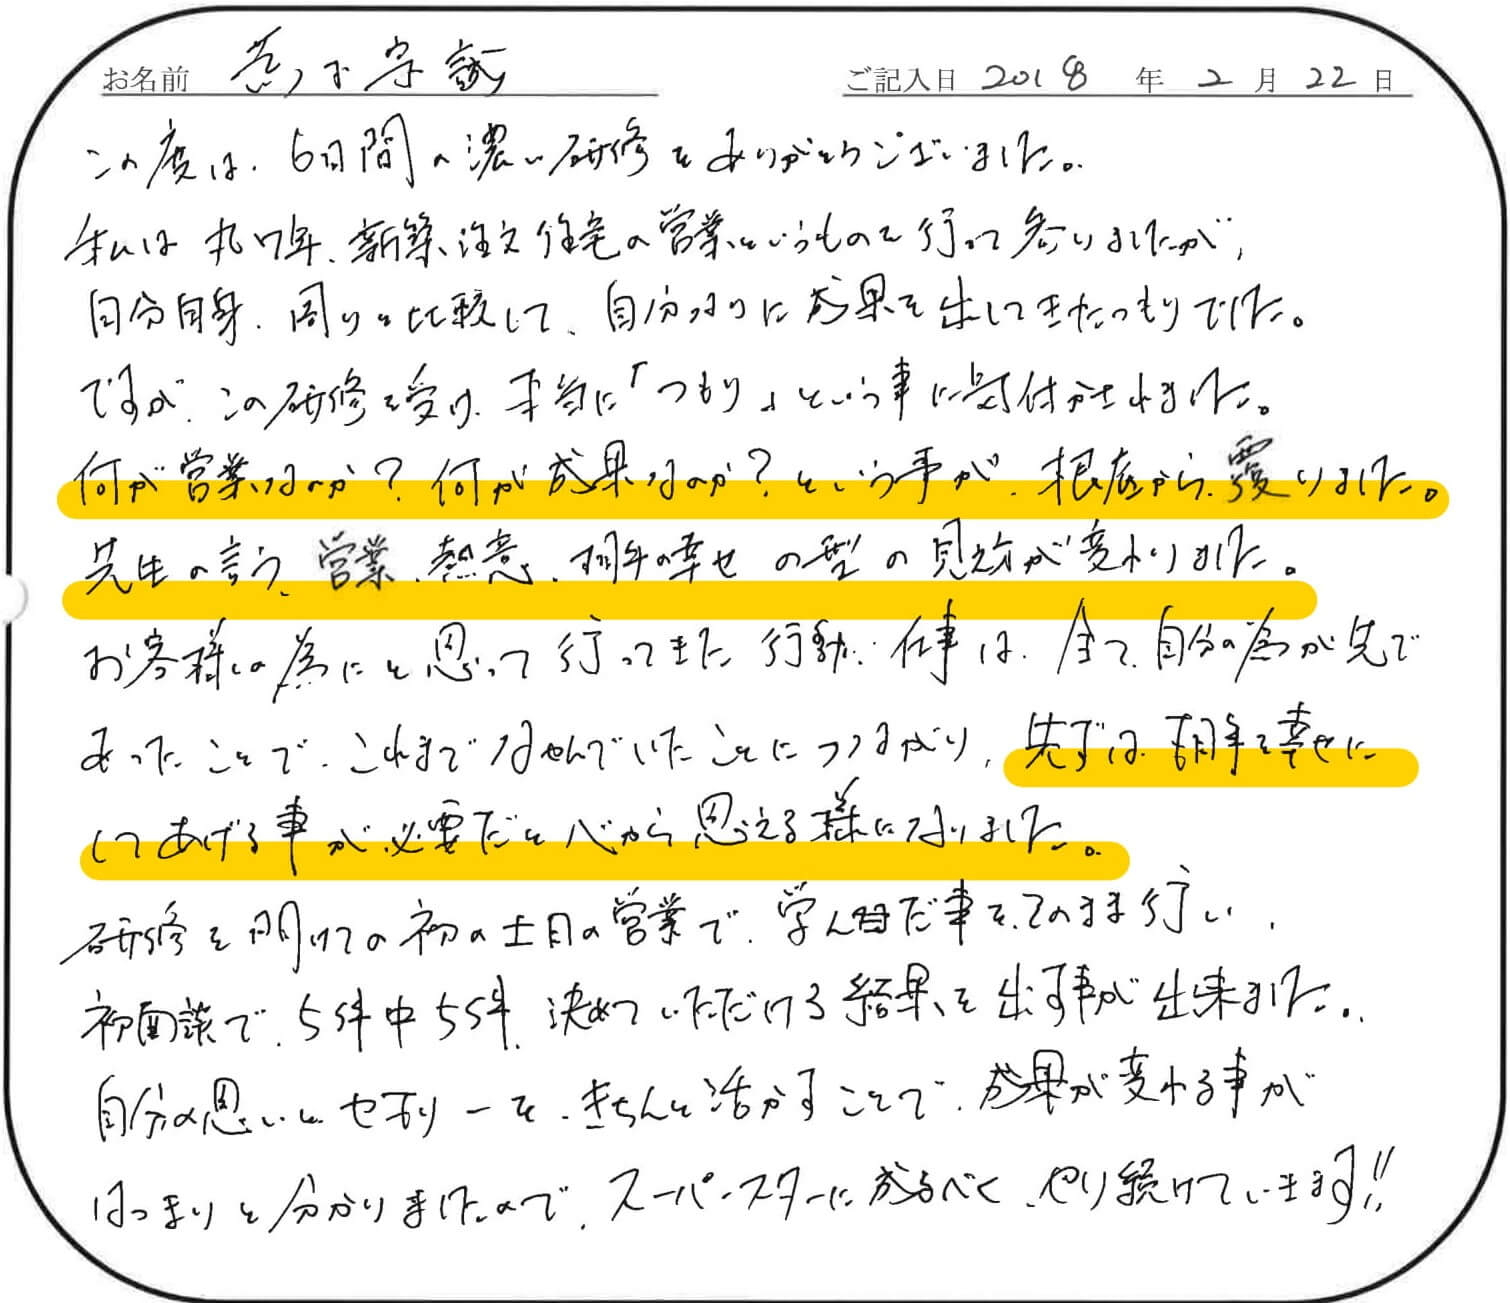 お名前 ご記入日 2018 年 2 月 22 日
この度は、6日間の濃い研修をありがとうございました。
私は丸7年、新築注文住宅の営業というものを行って参りましたが、
自分自身、周りと比較して、自分なりに成果を出してきたつもりでした。
ですが、この研修を受け、本当に「つもり」という事に気付かされました。
何が営業なのか?何が成果なのか?という事が、根底から、覆りました。
先生の言う、営業、熱意、相手の幸せの型の見え方が変わりました。
お客様の為にと思って行ってきた行動、仕事は、全て、自分の為が先で
あったことで、これまでなやんでいたことにつながり、先ずは相手を幸せに
してあげる事が必要だと心から思える様になりました。
研修を開けての初の土日の営業で、学んだ事を、そのまま行い、
初面談で、5件中5件、決めていただける結果を出す事が出来ました。
自分の思いとセオリーを、きちんと活かすことで、成果が変わる事が
はっきりと分かりましたので、スーパースターに成るべく、やり続けていきます!!